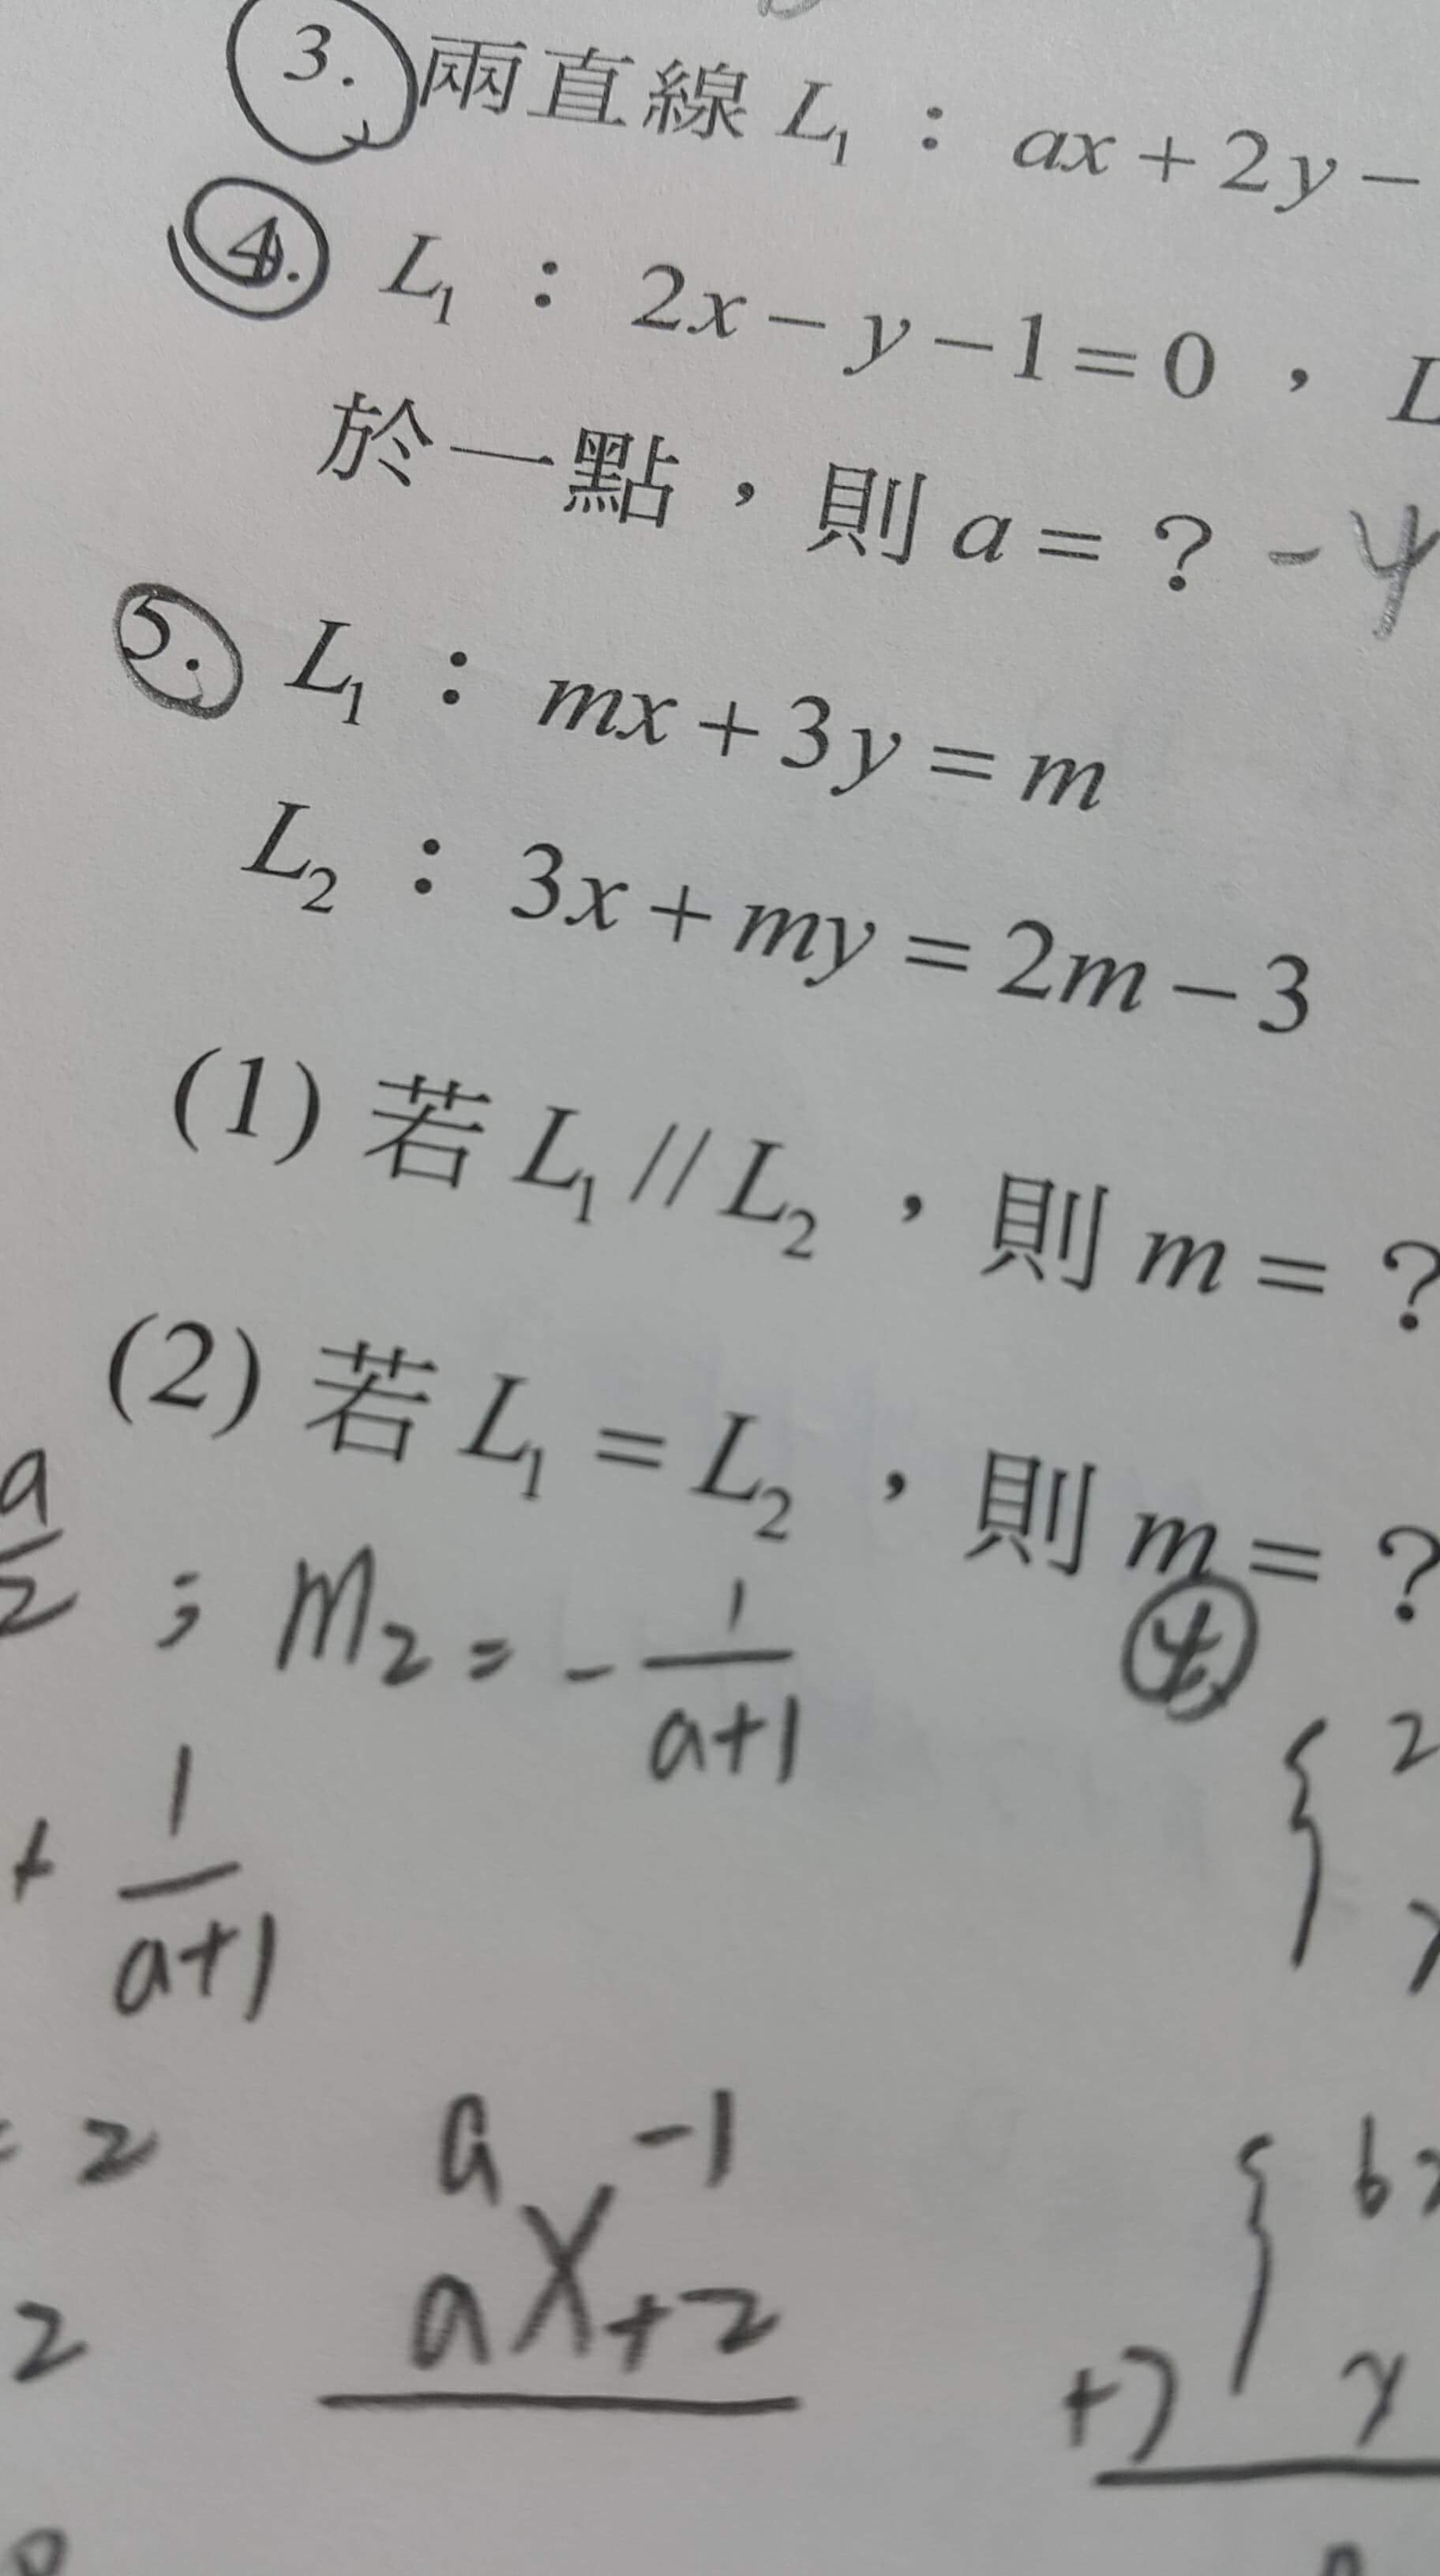 3. 兩直線 L₁：ax + 2y −
4. L₁：2x − y − 1 = 0，L
於一點，則 a = ? -4
5. L₁：mx + 3y = m
L₂：3x + my = 2m − 3
(1) 若 L₁ // L₂，則 m = ?
(2) 若 L₁ = L₂，則 m = ?
a/2 ; m₂ = - 1/(a+1)
④
{ 2
+ 1/(a+1)
= 2
a -1
a +2
2
{ 6x
+) x